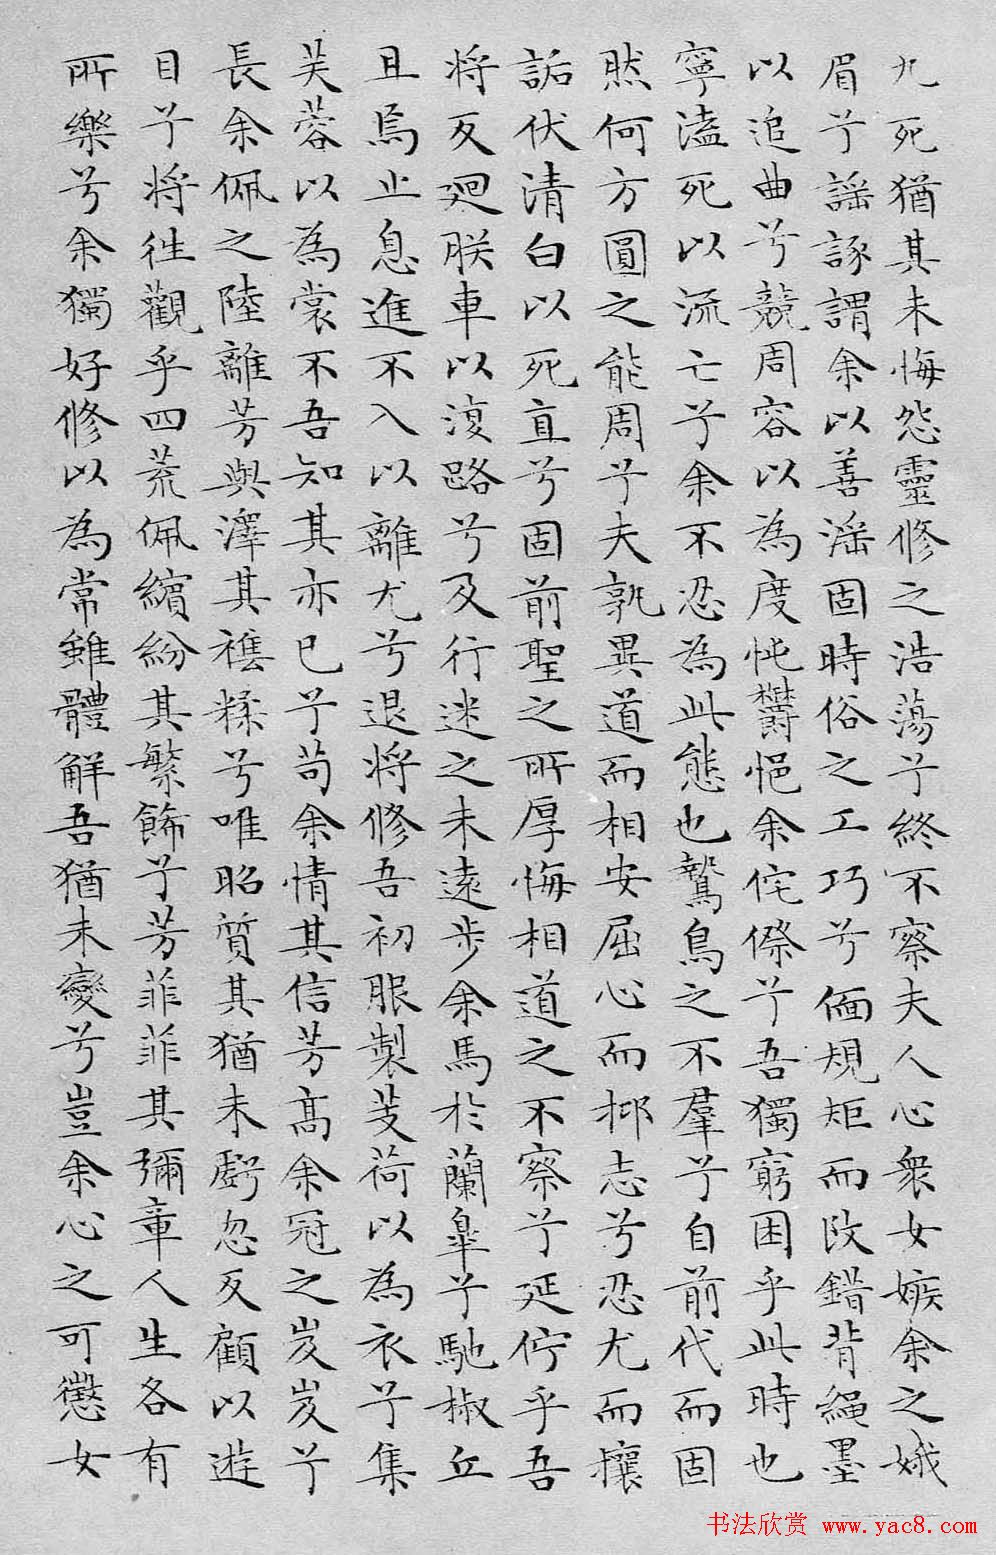 九死猶其未悔怨靈修之浩蕩兮終不察夫人心衆女嫉余之娥
眉兮謠諑謂余以善淫固時俗之工巧兮偭規矩而改錯背繩墨
以追曲兮競周容以為度忳鬱悒余侘傺兮吾獨窮困乎此時也
寧溘死以流亡兮余不忍為此態也鷙鳥之不羣兮自前代而固
然何方圓之能周兮夫孰異道而相安屈心而抑志兮忍尤而攘
詬伏清白以死直兮固前聖之所厚悔相道之不察兮延佇乎吾
將反廻朕車以復路兮及行迷之未遠步余馬於蘭皐兮馳椒丘
且焉止息進不入以離尤兮退將修吾初服製芰荷以為衣兮集
芙蓉以為裳不吾知其亦已兮苟余情其信芳高余冠之岌岌兮
長余佩之陸離芳與澤其襍糅兮唯昭質其猶未虧忽反顧以遊
目兮將往觀乎四荒佩繽紛其繁飾兮芳菲菲其彌章人生各有
所樂兮余獨好修以為常雖體解吾猶未變兮豈余心之可懲女
书法欣赏 www.yac8.com